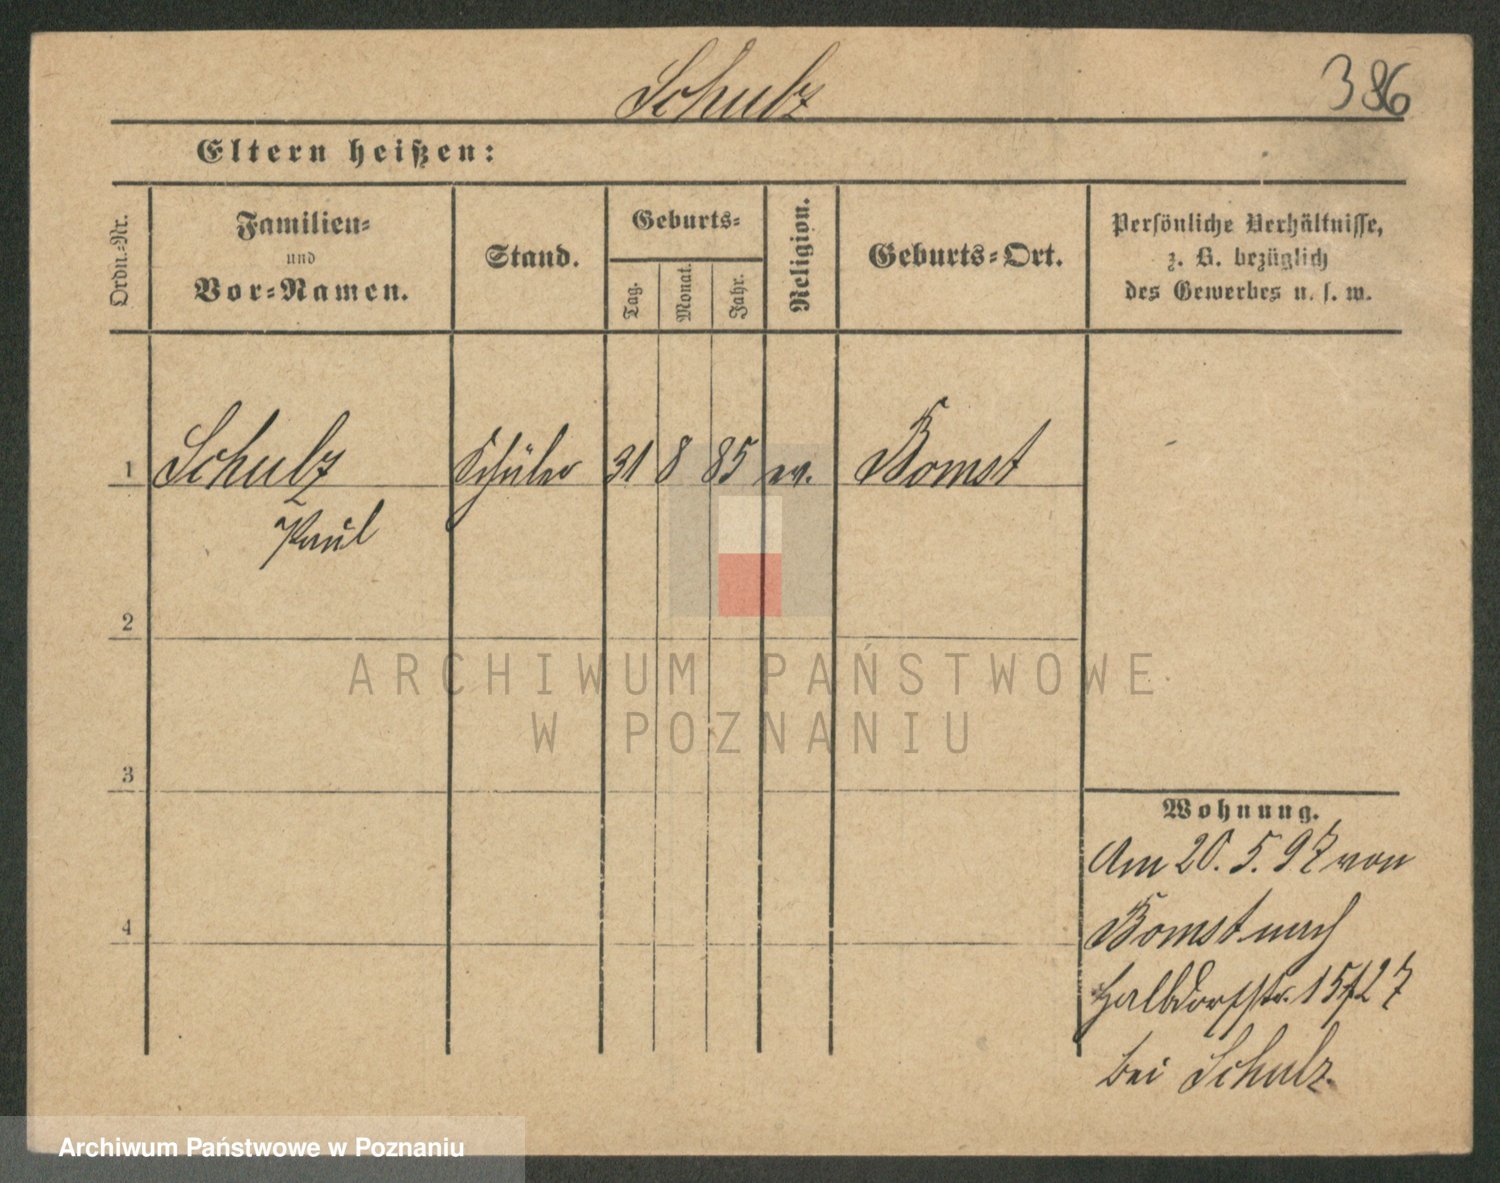 Schulz 386
Eltern heißen:
Ordn.-Nr.
Familien-
und
Vor-Namen.
Stand.
Geburts-
Tag.
Monat.
Jahr.
Religion.
Geburts-Ort.
Persönliche Verhältnisse,
z. B. bezüglich
des Gewerbes u. s. w.
1 Schulz Schüler 31 8 85 ev. Bomst
Paul
2
3
4
Wohnung.
Am 20. 5. 97 von
Bomst nach
Halbdorfstr. 15/27
bei Schulz.
ARCHIWUM PAŃSTWOWE
W POZNANIU
Archiwum Państwowe w Poznaniu